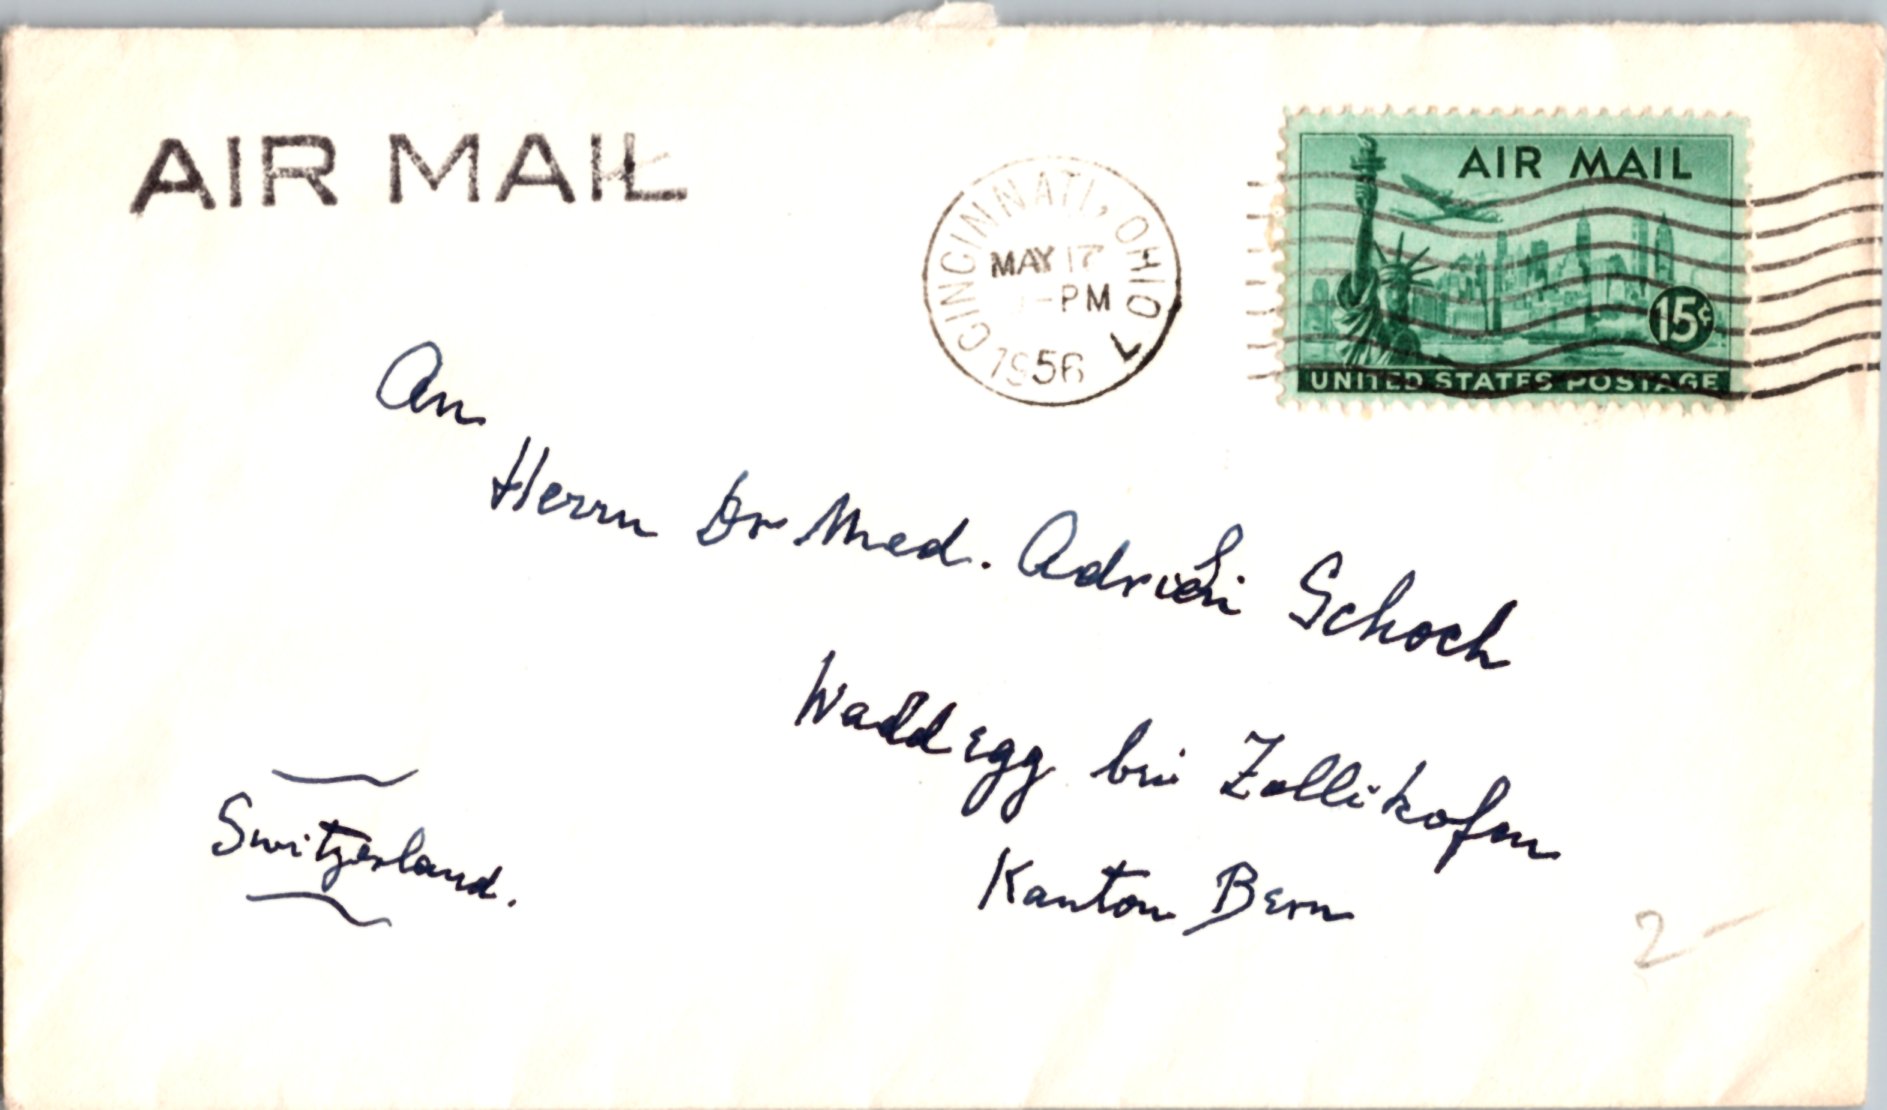 AIR MAIL
CINCINNATI, OHIO 7
MAY 17
-PM
1956
AIR MAIL
15¢
UNITED STATES POSTAGE
An
Herrn Dr Med. Adrien Schoch
Waldegg bei Zollikofen
Kanton Bern
Switzerland.
2-